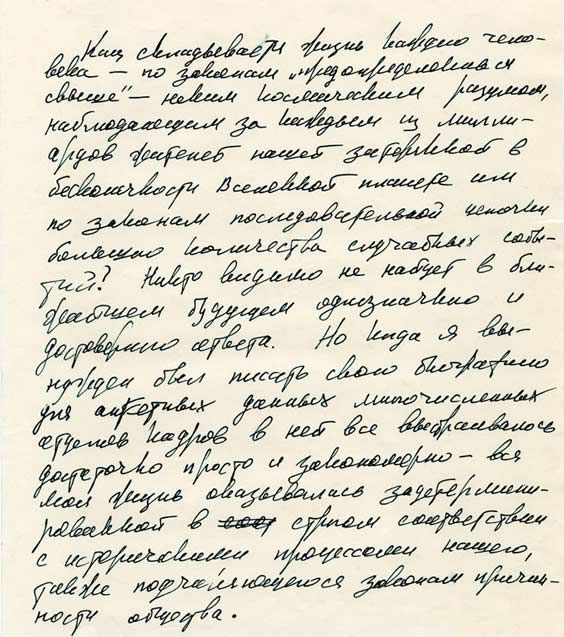 Как складывается жизнь каждого чело-
века – по законам „предопределенным
свыше" – неким космическим разумом,
наблюдающим за каждым из милли-
ардов жителей нашей затерянной в
бесконечности Вселенной планете или
по законам последовательной цепочки
большого количества случайных собы-
тий? Никто видимо не найдет в бли-
жайшем будущем однозначного и
достоверного ответа. Но когда я вы-
нужден был писать свою биографию
для анкетных данных многочисленных
отделов кадров в ней все выстраивалось
достаточно просто и закономерно – вся
моя жизнь оказывалась задетермини-
рованной в строгом соответствии
с историческими процессами нашего,
также подчиняющегося законам причин-
ности общества.